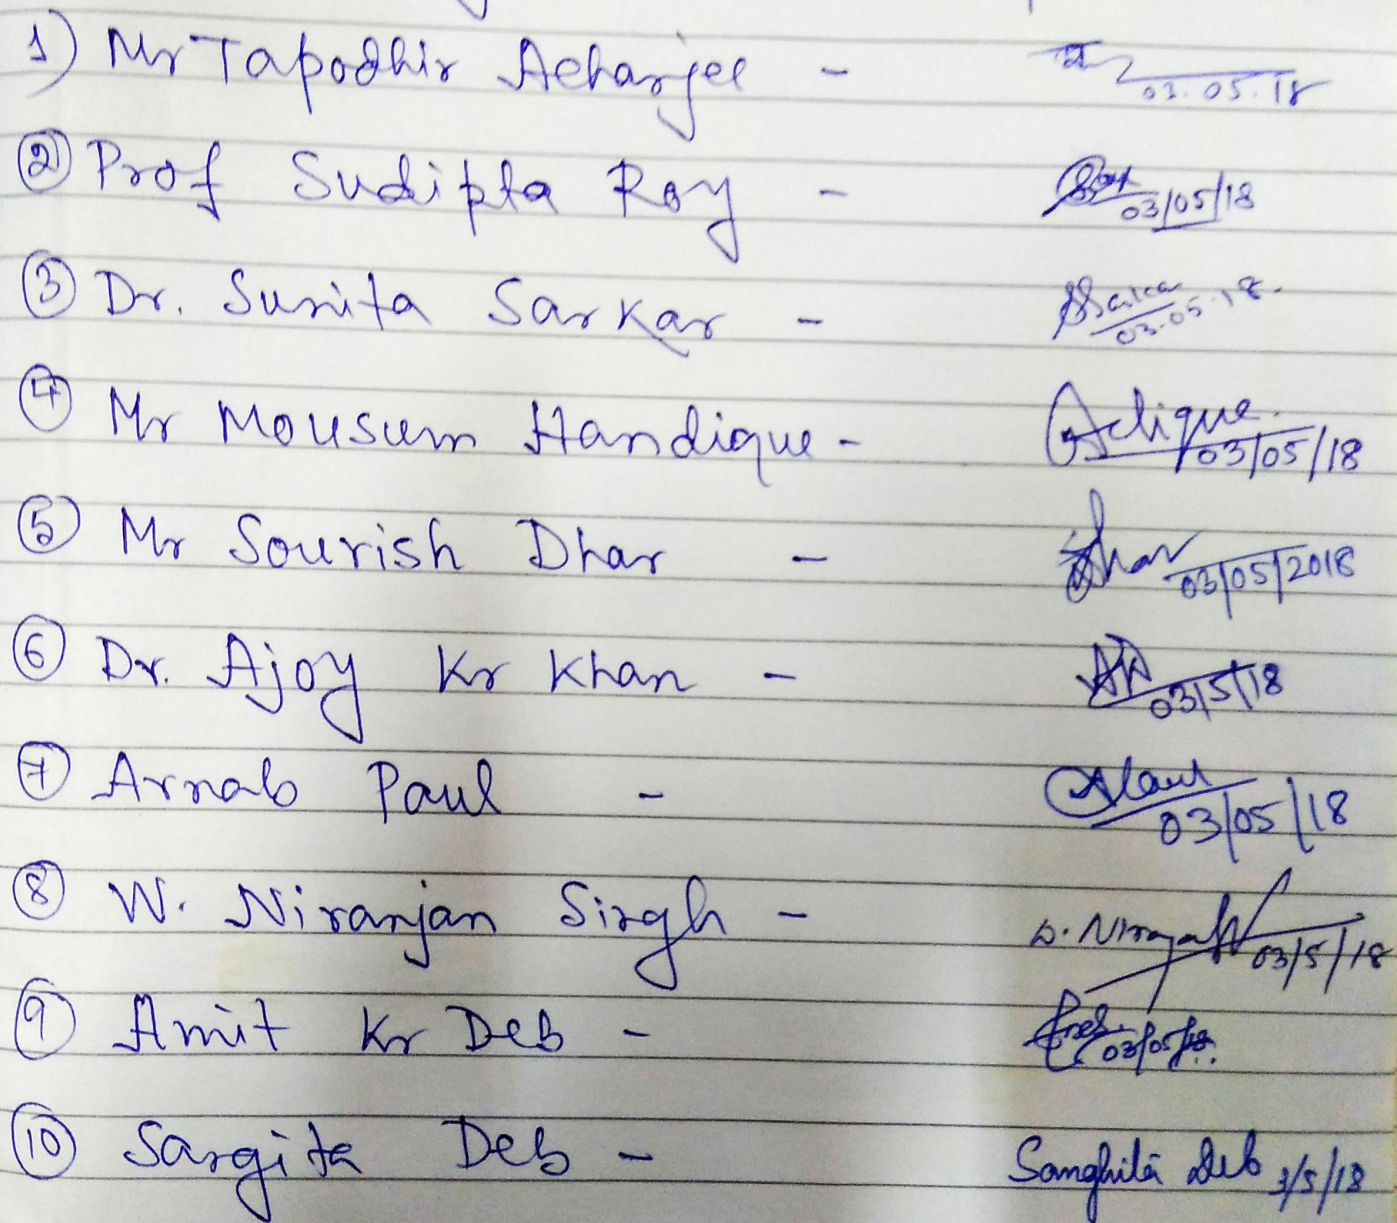 1) Mr Tapodhir Acharjee - 03.05.18
② Prof Sudipta Roy - Roy 03/05/18
③ Dr. Sunita Sarkar - 03.05.18.
④ Mr Mousum Handique - 03/05/18
⑤ Mr Sourish Dhar - Dhar 03/05/2018
⑥ Dr. Ajoy Kr Khan - 03/5/18
⑦ Arnab Paul - 03/05/18
⑧ W. Niranjan Singh - 03/5/18
⑨ Amit Kr Deb - 03/05/18
⑩ Sangita Deb - Sanghita Deb 3/5/18